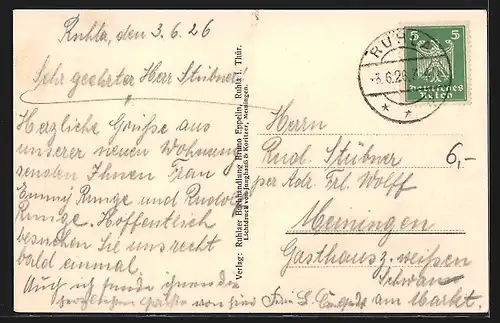 Ruhla, den 3.6.26
Sehr geehrter Herr Stübner
Herzliche Grüsse aus
unserer neuen Wohnung
senden Ihnen Frau
Emmy Runge und Rudolf
Runge. Hoffentlich
besuchen Sie uns recht
bald einmal.
Auch ich sende ihnen die
herzlichsten Grüße von hier
Verlag: Ruhlaer Buchhandlung Bruno Eppelin, Ruhla i. Thür.
Lichtdruck von Junghanß & Koritzer, Meiningen.
5 5
Deutsches
Reich
RUHLA
-3.6.26.
Herrn
Rud. Stübner
per Adr. Frl. Wolff
Meiningen
Gasthaus z. weißen
Schwan
am Markt.
6,-